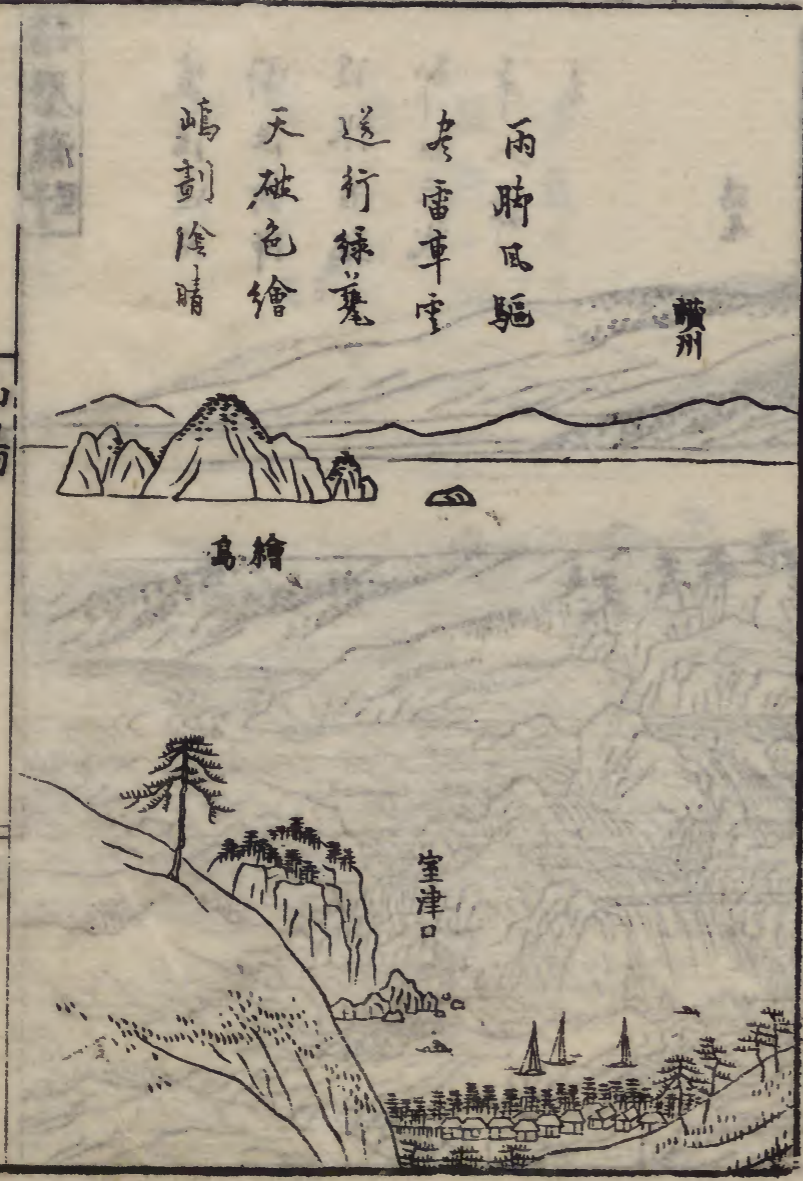 雨脚風驅
尽雷車雲
送行緑蓑
天破色繪
嶋割陰晴
讃州
繪島
室津口